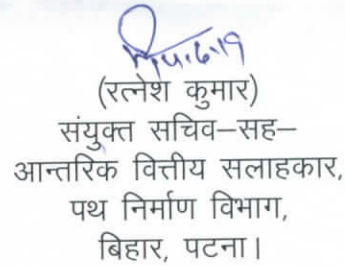 4.6.19
(रत्नेश कुमार)
संयुक्त सचिव–सह–
आन्तरिक वित्तीय सलाहकार,
पथ निर्माण विभाग,
बिहार, पटना।